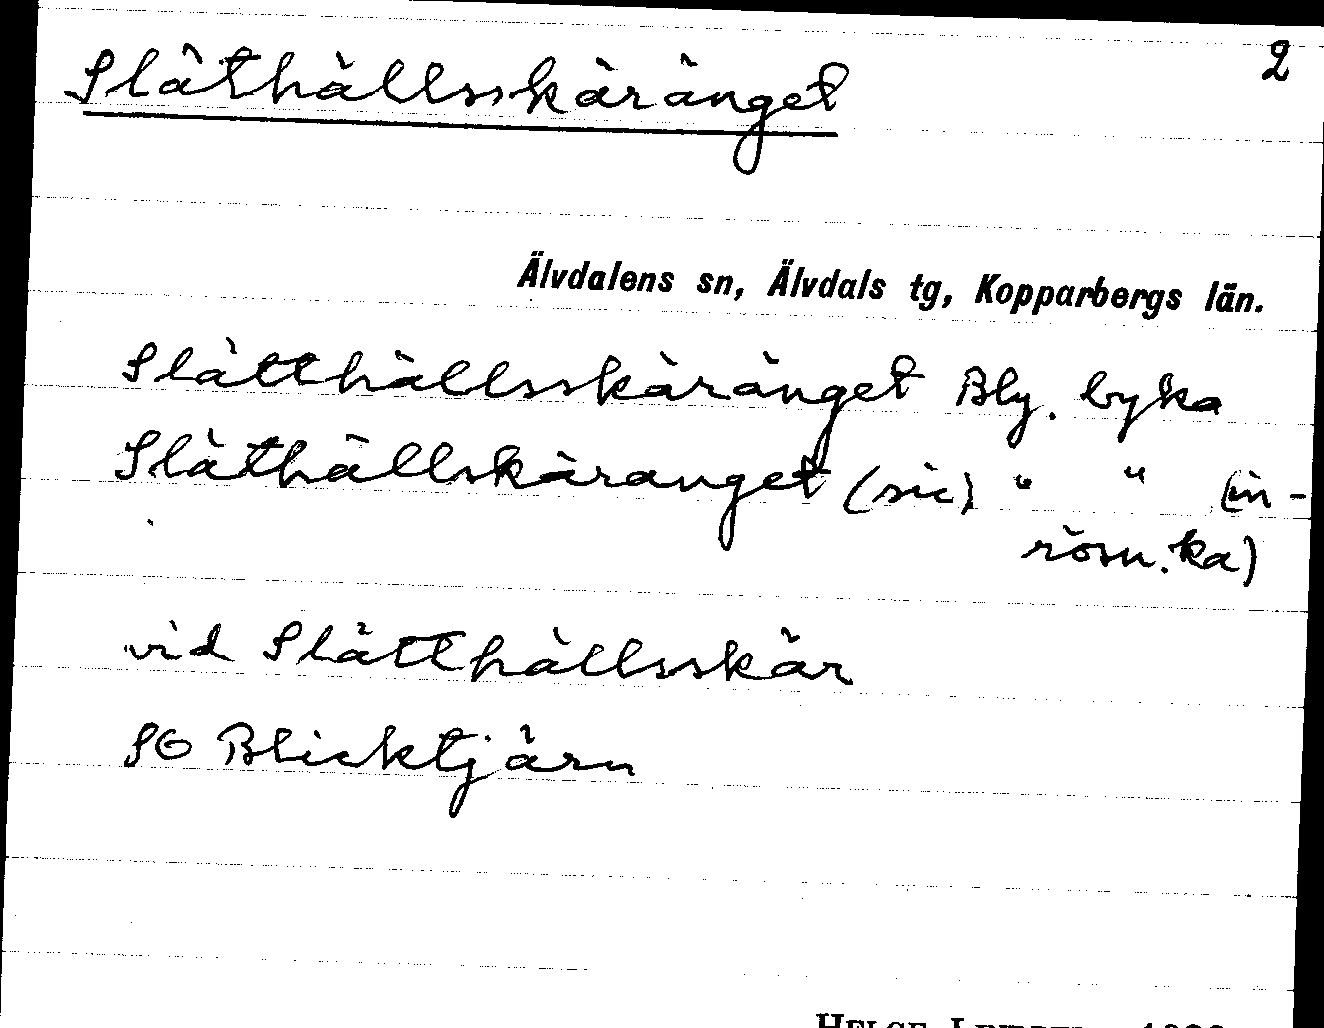 2
Släthällsskäränget
Älvdalens sn, Älvdals tg, Kopparbergs län.
Slätthällsskäränget Bly. byka
Släthällskäranget (sic) " " (in-
rösn. ka)
vid Slätthällsskär
SO Blicktjärn
HELGE